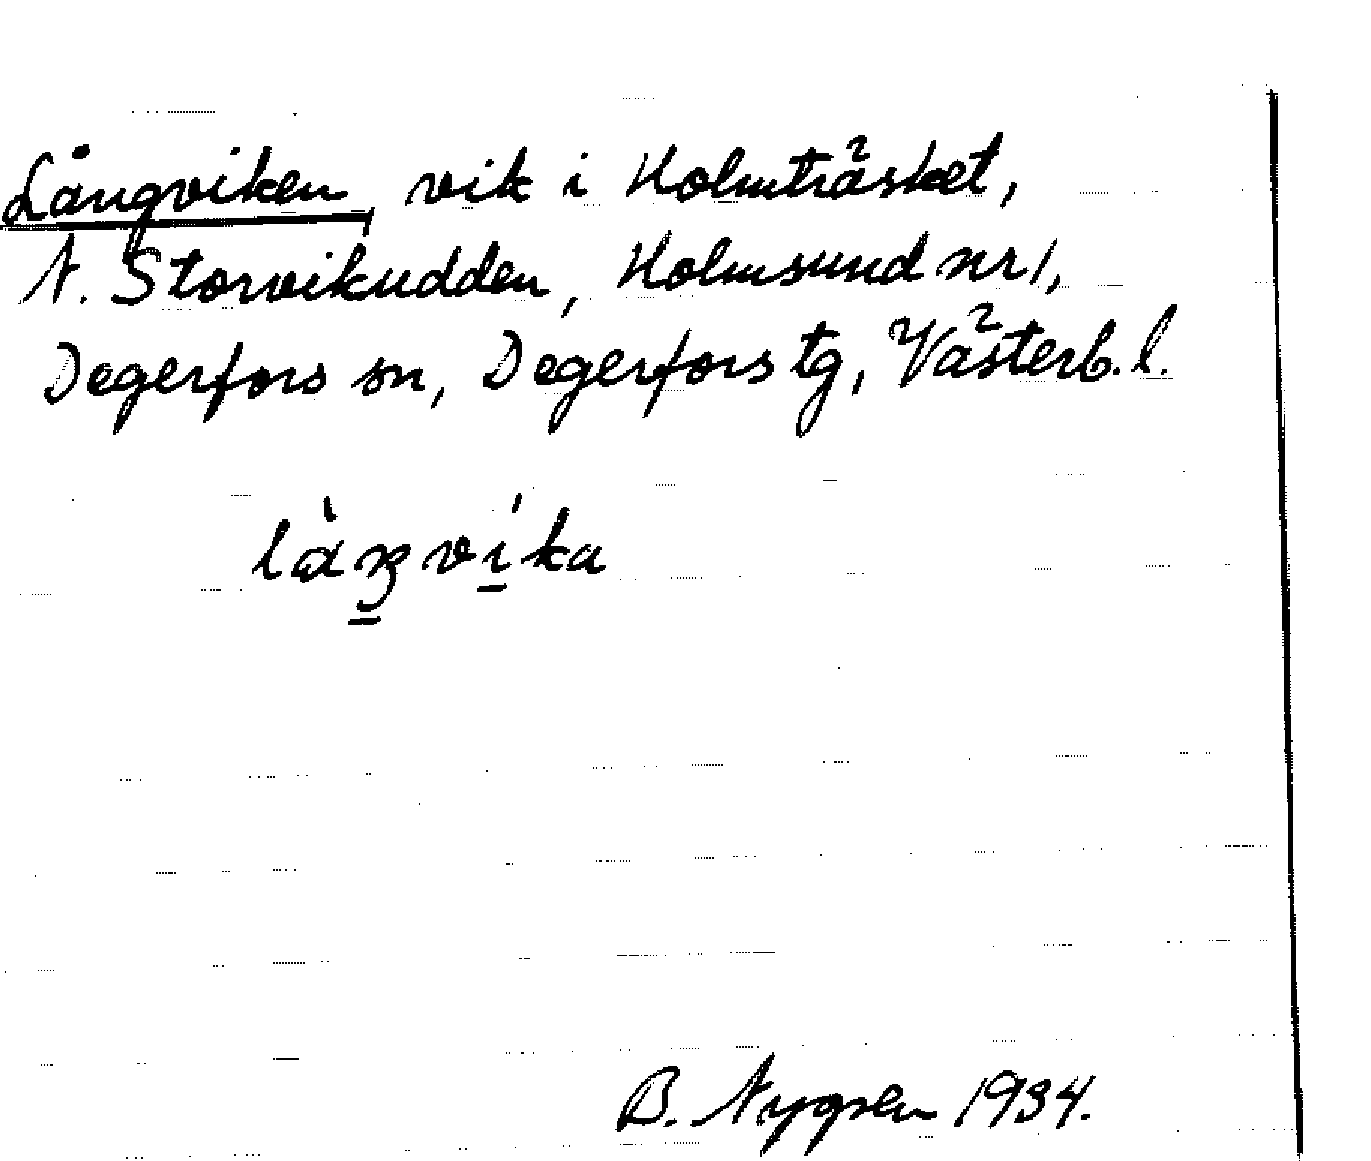 Långviken, vik i Holmträsket,
N. Storvikudden, Holmsund nr 1,
Degerfors sn, Degerfors tg, Västerb. l.
làŋví̱ka
B. Nygren 1934.